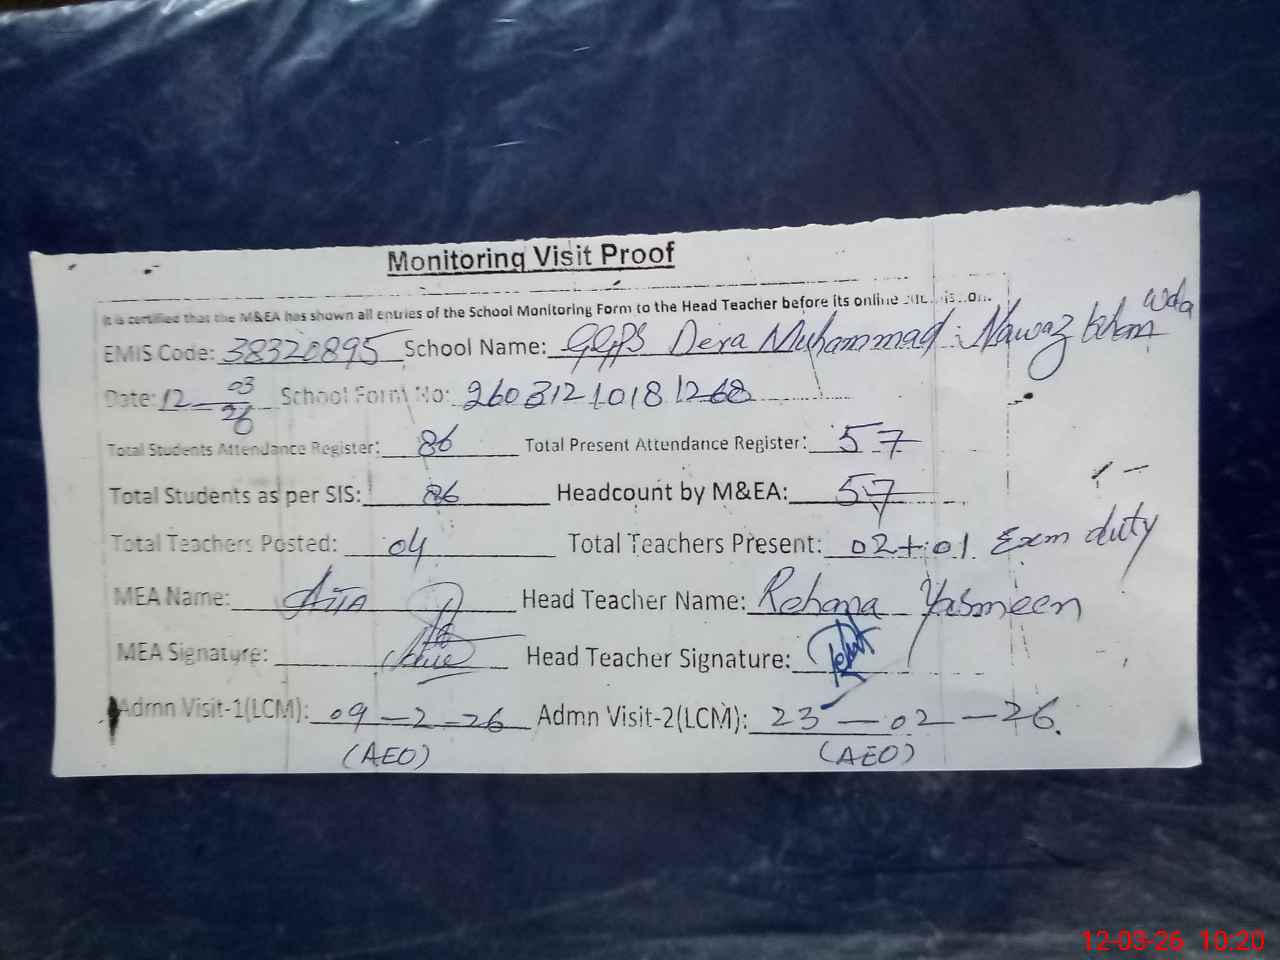 Monitoring Visit Proof
It is certified that the M&EA has shown all entries of the School Monitoring Form to the Head Teacher before its online
EMIS Code: 38320895 School Name: GGPS Dera Muhammad Nawaz Wala
Date: 12-03-26 School Form No: 26031210181268
Total Students Attendance Register: 86 Total Present Attendance Register: 57
Total Students as per SIS: 86 Headcount by M&EA: 57
Total Teachers Posted: 04 Total Teachers Present: 02+01 Exam duty
MEA Name: Head Teacher Name: Rehana Yasmeen
MEA Signature: Head Teacher Signature:
Admn Visit-1(LCM): 09-2-26 Admn Visit-2(LCM): 23-02-26.
(AEO) (AEO)
12-03-26 10:20